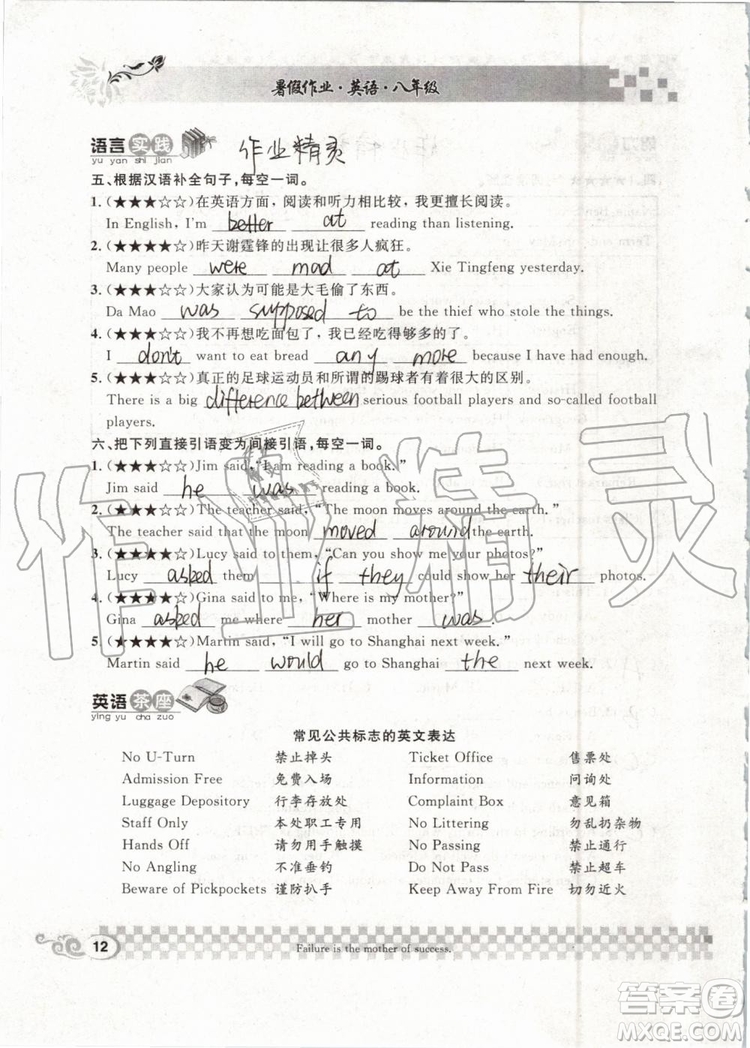 暑假作业·英语·八年级
语言实践
yu yan shi jian
作业精灵
五、根据汉语补全句子,每空一词。
1. (★★★☆☆)在英语方面,阅读和听力相比较,我更擅长阅读。
In English, I'm better at reading than listening.
2. (★★★☆☆)昨天谢霆锋的出现让很多人疯狂。
Many people were mad at Xie Tingfeng yesterday.
3. (★★★☆☆)大家认为可能是大毛偷了东西。
Da Mao was supposed to be the thief who stole the things.
4. (★★★☆☆)我不再想吃面包了,我已经吃得够多的了。
I don't want to eat bread any more because I have had enough.
5. (★★★☆☆)真正的足球运动员和所谓的踢球者有很大的区别。
There is a big difference between serious football players and so-called football
players.
六、把下列直接引语变为间接引语,每空一词。
1. (★★★★☆)Jim said, "I am reading a book."
Jim said he was reading a book.
2. (★★★★☆)The teacher said, "The moon moves around the earth."
The teacher said that the moon moved around the earth.
3. (★★★★☆)Lucy said to them, "Can you show me your photos?"
Lucy asked them if they could show her their photos.
4. (★★★★☆)Gina said to me, "Where is my mother?"
Gina asked me where her mother was.
5. (★★★★☆)Martin said, "I will go to Shanghai next week."
Martin said he would go to Shanghai the next week.
英语茶座
ying yu cha zuo
常见公共标志的英文表达
No U-Turn 禁止掉头 Ticket Office 售票处
Admission Free 免费入场 Information 问询处
Luggage Depository 行李存放处 Complaint Box 意见箱
Staff Only 本处职工专用 No Littering 勿乱扔杂物
Hands Off 请勿用手触摸 No Passing 禁止通行
No Angling 不准垂钓 Do Not Pass 禁止超车
Beware of Pickpockets 谨防扒手 Keep Away From Fire 切勿近火
12
Failure is the mother of success.
作业精灵
答案圈
MXQE.COM